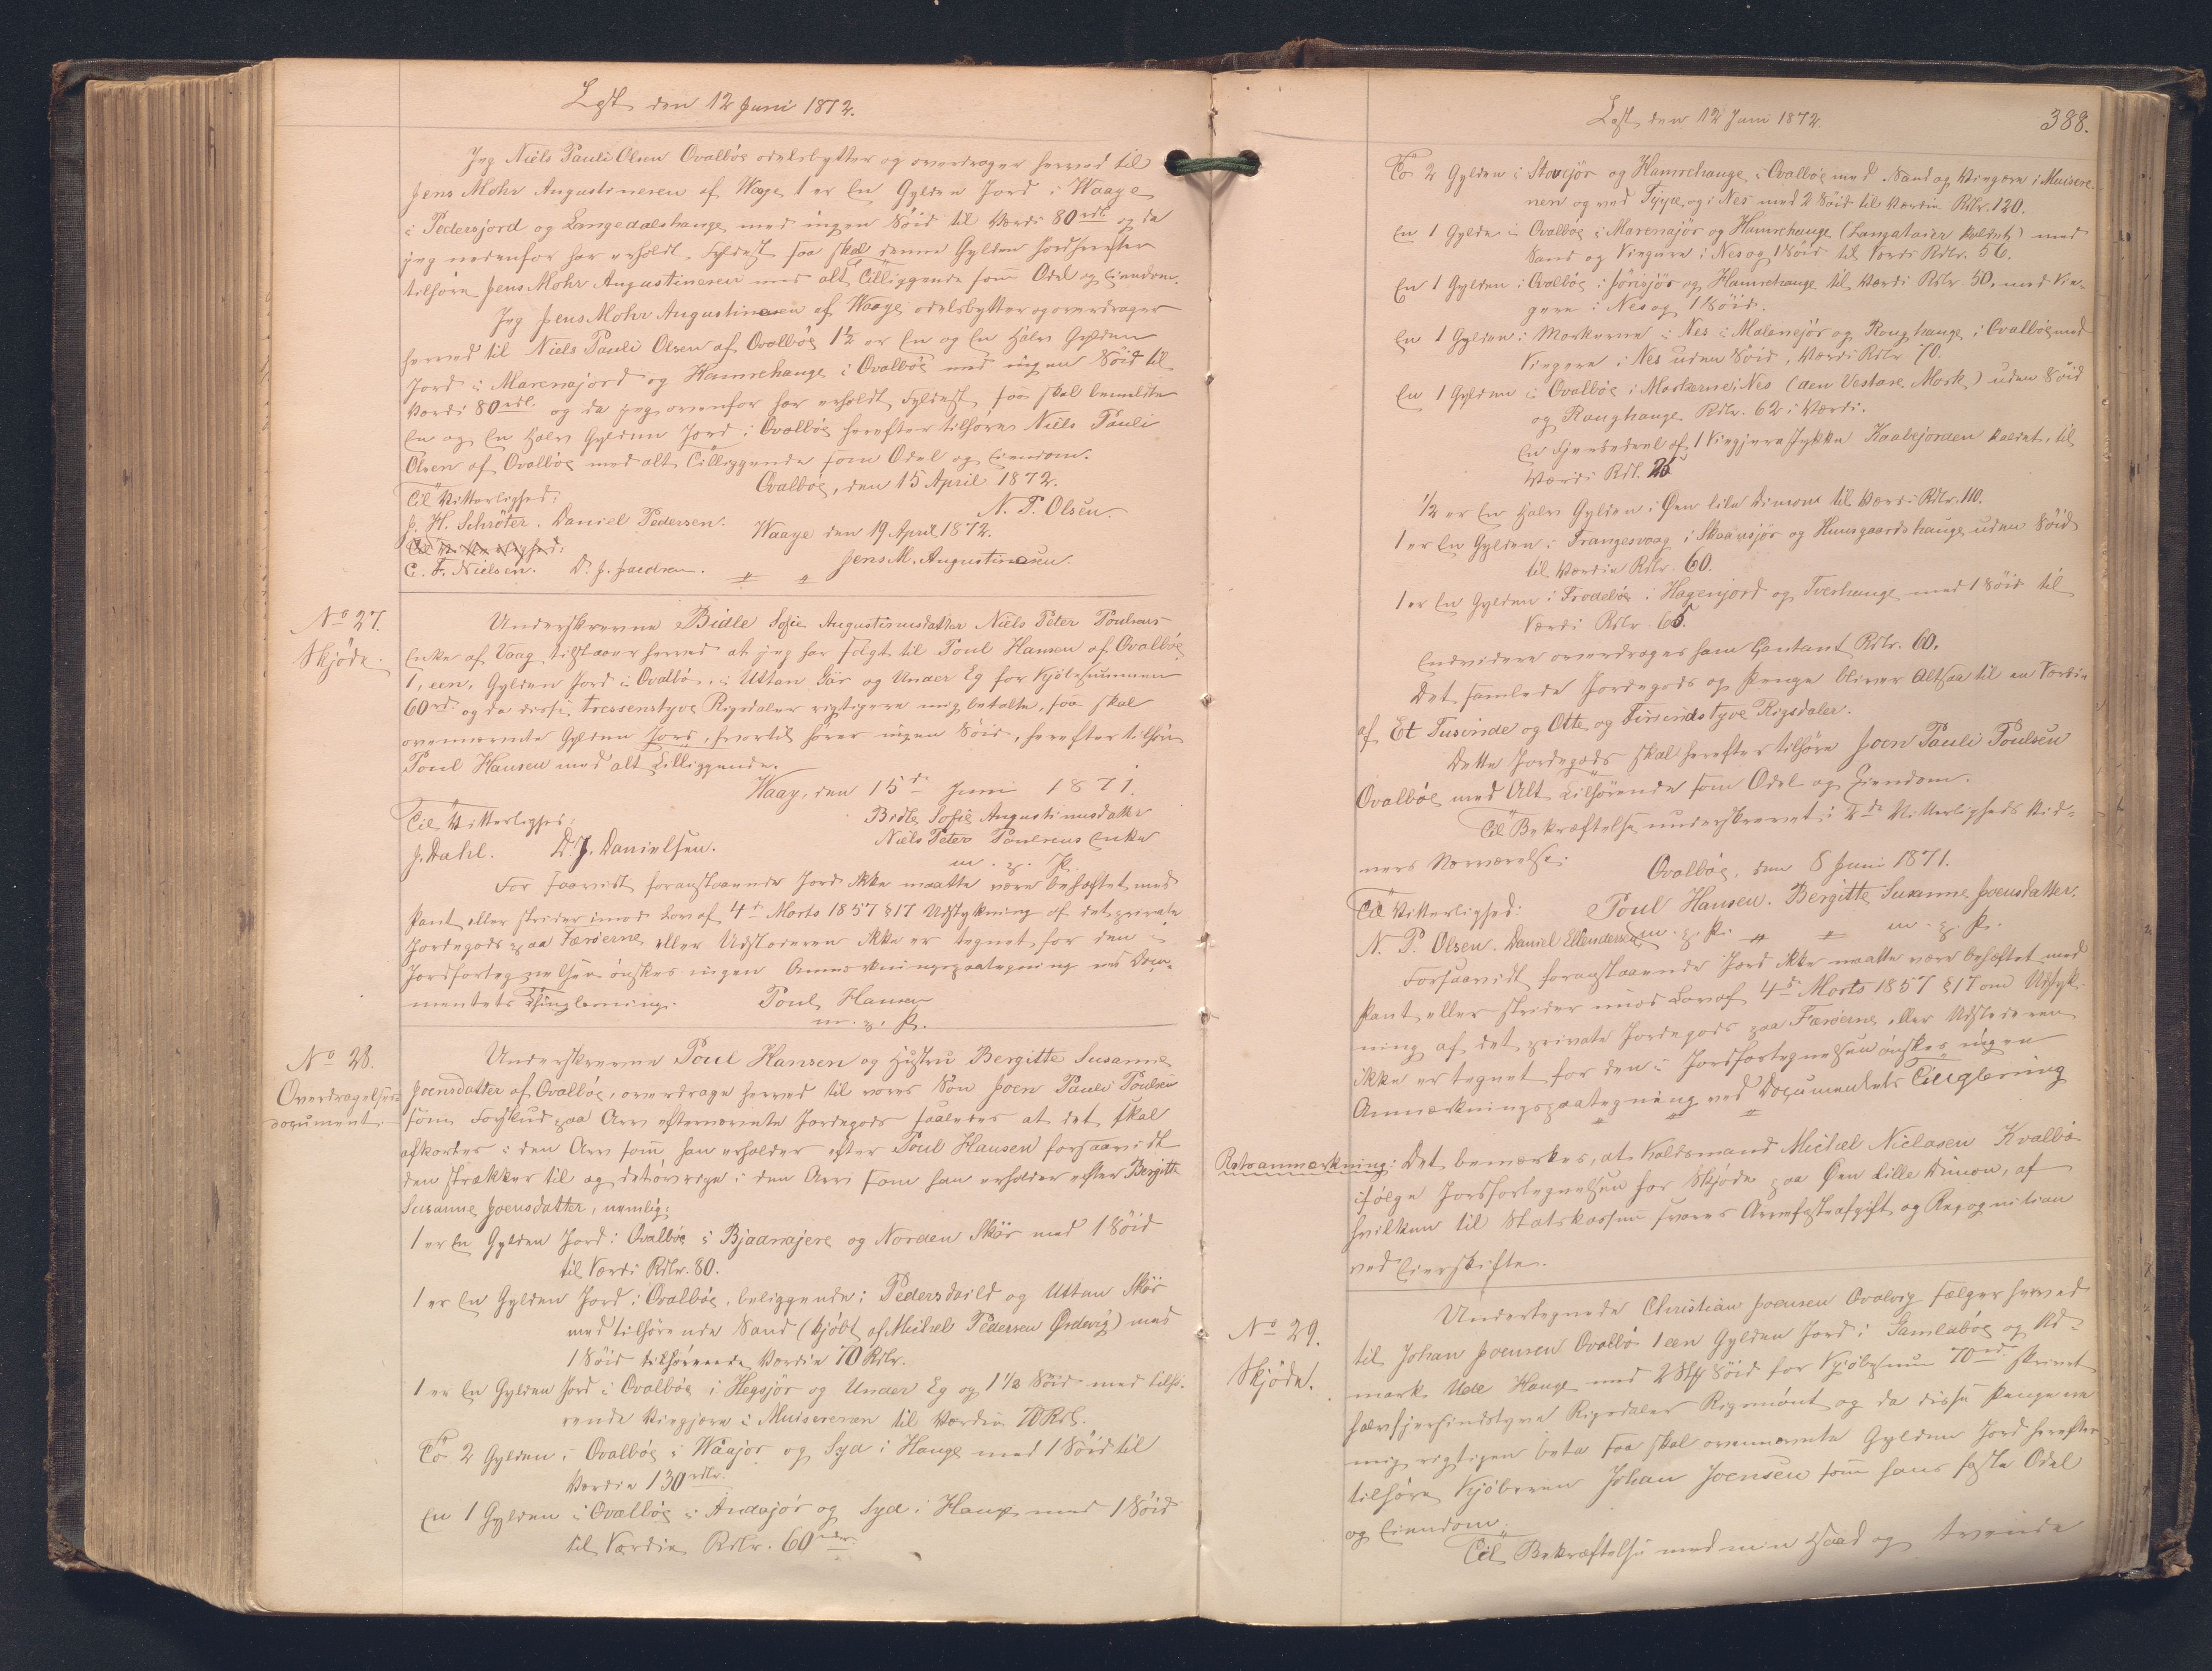 Læst den 12 Juni 1872.
Jeg Niels Pauli Olsen Qvalböe odelsbytter og overdrager herved til
Jens Mohr Augustinesen af Waage 1 er En Gylden Jord i Waage
i Pedersjord og Langedalshauge med ingen Söid til Værdi 80 rdl. og da
jeg nedenfor har erholdt Fyldest saa skal denne Gylden Jord herefter
tilhöre Jens Mohr Augustinesen med alt Tilliggende som Odel og Eiendom.
Jeg Jens Mohr Augustinesen af Waage odelsbytter og overdrager
herved til Niels Pauli Olsen af Qvalböe 1½ er En og En Halv Gylden
Jord i Marenajord og Hamrehauge i Qvalböe med ingen Söid til
Værdi 80 rdl. og da jeg ovenfor har erholdt Fyldest saa skal bemeldte
En og En Halv Gylden Jord i Qvalböe herefter tilhöre Niels Pauli
Olsen af Qvalböe med alt Tilliggende som Odel og Eiendom.
Qvalböe, den 15 April 1872.
Til Vitterlighed:
N. P. Olsen
J. H. Schröter. Daniel Pedersen.
Waage den 19 April 1872.
Til Vitterlighed:
Jens M. Augustinesen.
C. F. Nielsen. D. J.
No 27.
Skjöde.
Underskrevne Bidle Sofie Augustinusdatter Niels Peter Poulsens
Enke af Vaag tilstaaer herved at jeg har solgt til Poul Hansen af Qvalböe
1, een, Gylden Jord i Qvalbö, i Uttan Gär og Under Eg for Kjöbesummen
60 rd. og da disse tressenstyve Rigsdaler rigtigen er mig betalte, saa skal
ovennævnte Gylden Jord, hvortil hörer ingen Söid, herefter tilhöre
Poul Hansen med alt Tilliggende.
Waag, den 15de Juni 1871.
Til Vitterlighed:
Bidle Sofie Augustinusdatter
J. Dahl. D. J. Danielsen.
Niels Peter Poulsens Enke
m. p. P.
For saavidt foranstaaende Jord ikke maatte være behæftet med
Pant eller strider imod Lov af 4de Marts 1857 §17 Udstykning af det private
Jordegods paa Færöerne eller Udstederen ikke er tegnet for den i
Jordfortegnelsen önskes ingen Anmærkningspaategning ved Docu-
mentets Thinglæsning.
Poul Hansen
m. p. P.
No 28.
Overdragelses-
document.
Underskrevne Poul Hansen og Hustru Bergitte Susanne
Joensdatter af Qvalböe, overdrage herved til vores Sön Joen Pauli Poulsen
som Forskud paa Arv efternævnte Jordegods saaledes at det skal
afkortes i den Arv som han erholder efter Poul Hansen forsaavidt
den strækker til og detövrige i den Arv som han erholder efter Bergitte
Susanne Joensdatter, nemlig:
1 er En Gylden Jord i Qvalböe i Bjaarnajere og Norden Skär med 1 Söid
til Værdi Rdlr. 80.
1 er En Gylden Jord i Qvalböe, beliggende i Pedersdeild og Uttan Skär
med tilhörende Sand (kjöbt af Michael Pedersen Ördevig) med
1 Söid tilhörende Værdie 70 Rdlr.
1 er En Gylden Jord i Qvalböe i Hegsjör og Under Eg og 1½ Söid med tilhö-
rende Kingjere i Muiserenen til Værdie 70 Rdl.
To 2 Gylden i Qvalböe i Waajor og Syd i Hauge med 1 Söid til
Værdie 130 rdlr.
En 1 Gylden i Qvalböe i Andajör og Syd i Hauge med 1 Söid
til Værdie Rdlr. 60
Læst den 12 Juni 1872.
388.
To 2 Gylden i Stovejör og Hamrehauge i Qvalböe med Sand og Kingere i Muisere-
nen og ved Tippe, og i Nes med 2 Söid til Værdie Rdlr. 120.
En 1 Gylden i Qvalböe i Marenajör og Hamrehauge (Langateier kaldet) med
Sand og Kingere i Nes og 1 Söid til Værdi Rdlr. 56.
En 1 Gylden i Qvalböe i Jörisjör og Hamrehauge til Værdi Rdlr. 50, med Kin-
gere i Nes og 1 Söid.
En 1 Gylden i Markerne i Nes i Malenejör og Roughauge i Qvalböe med
Kingere i Nes uden Söid, Værdi Rdlr 70.
En 1 Gylden i Qvalböe i Markerne i Nes (den Vestare Mark) uden Söid
og Roughauge Rdlr. 62 i Værdi.
En Fjerdedeel af 1 Kingjerestykke Kaalejorden kaldet, til
Værdi Rdl. 25
1/2 er En Halv Gylden i Öen lile Dimon til Værdi Rdlr. 110.
1 er En Gylden i Trangesvaag i Skaansjör og Huusgaardshauge uden Söid
til Værdie Rdlr. 60.
1 er En Gylden i Frodeböe i Hagenjord og Tverhauge med 1 Söid til
Værdi Rdlr. 65.
Endvidere overdrages ham Contant Rdlr. 60.
Det samlede Jordegods og Penge bliver altsaa til en Værdie
af Et Tusinde og Otte og Firsindstyve Rigsdaler.
Dette Jordegods skal herefter tilhöre Joen Pauli Poulsen
Qvalböe med Alt Tilhörende som Odel og Eiendom.
Til Bekræftelse underskrevet i 2de Vitterligheds Vid-
ners Nærværelse.
Qvalböe, den 8 Juni 1871.
Til Vitterlighed:
Poul Hansen. Bergitte Susanne Joensdatter.
N. P. Olsen. Daniel Ellendersen
m. p. P. m. p. P.
Forsaavidt foranstaaende Jord ikke maatte være behæftet med
Pant eller strider imod Lov af 4de Marts 1857 §17 om Udstyk-
ning af det private Jordegods paa Færöerne eller Udstederen
ikke er tegnet for den i Jordfortegnelsen önskes ingen
Anmærkningspaategning ved Documentets Tinglæsning
Retsanmærkning: Det bemærkes, at Koldsmand Michael Niclasen Kvalbö
ifölge Jordfortegnelsen har Skjöde paa Öen lille Dimon, af
hvilken til Statskassen svares Arvefæsteafgift og Recognition
ved Eierskifte.
No 29.
Skjöde.
Undertegnede Christian Joensen Qvalvig sælger herved
til Johan Joensen Qvalbö 1 een Gylden Jord i Gamlaböe og Ad-
mark Ude Hauge med 2 Stk Söid for Kjöbesum 70 rd. skrivet
halvfjerdsindstyve Rigsdaler Rigsmönt og da disse Penge ere
mig rigtigen betal saa skal ovennævnte Gylden Jord herefter
tilhöre Kjöberen Johan Joensen som hans faste Odel
og Eiendom.
Til Bekræftelse med min Haand og tvende